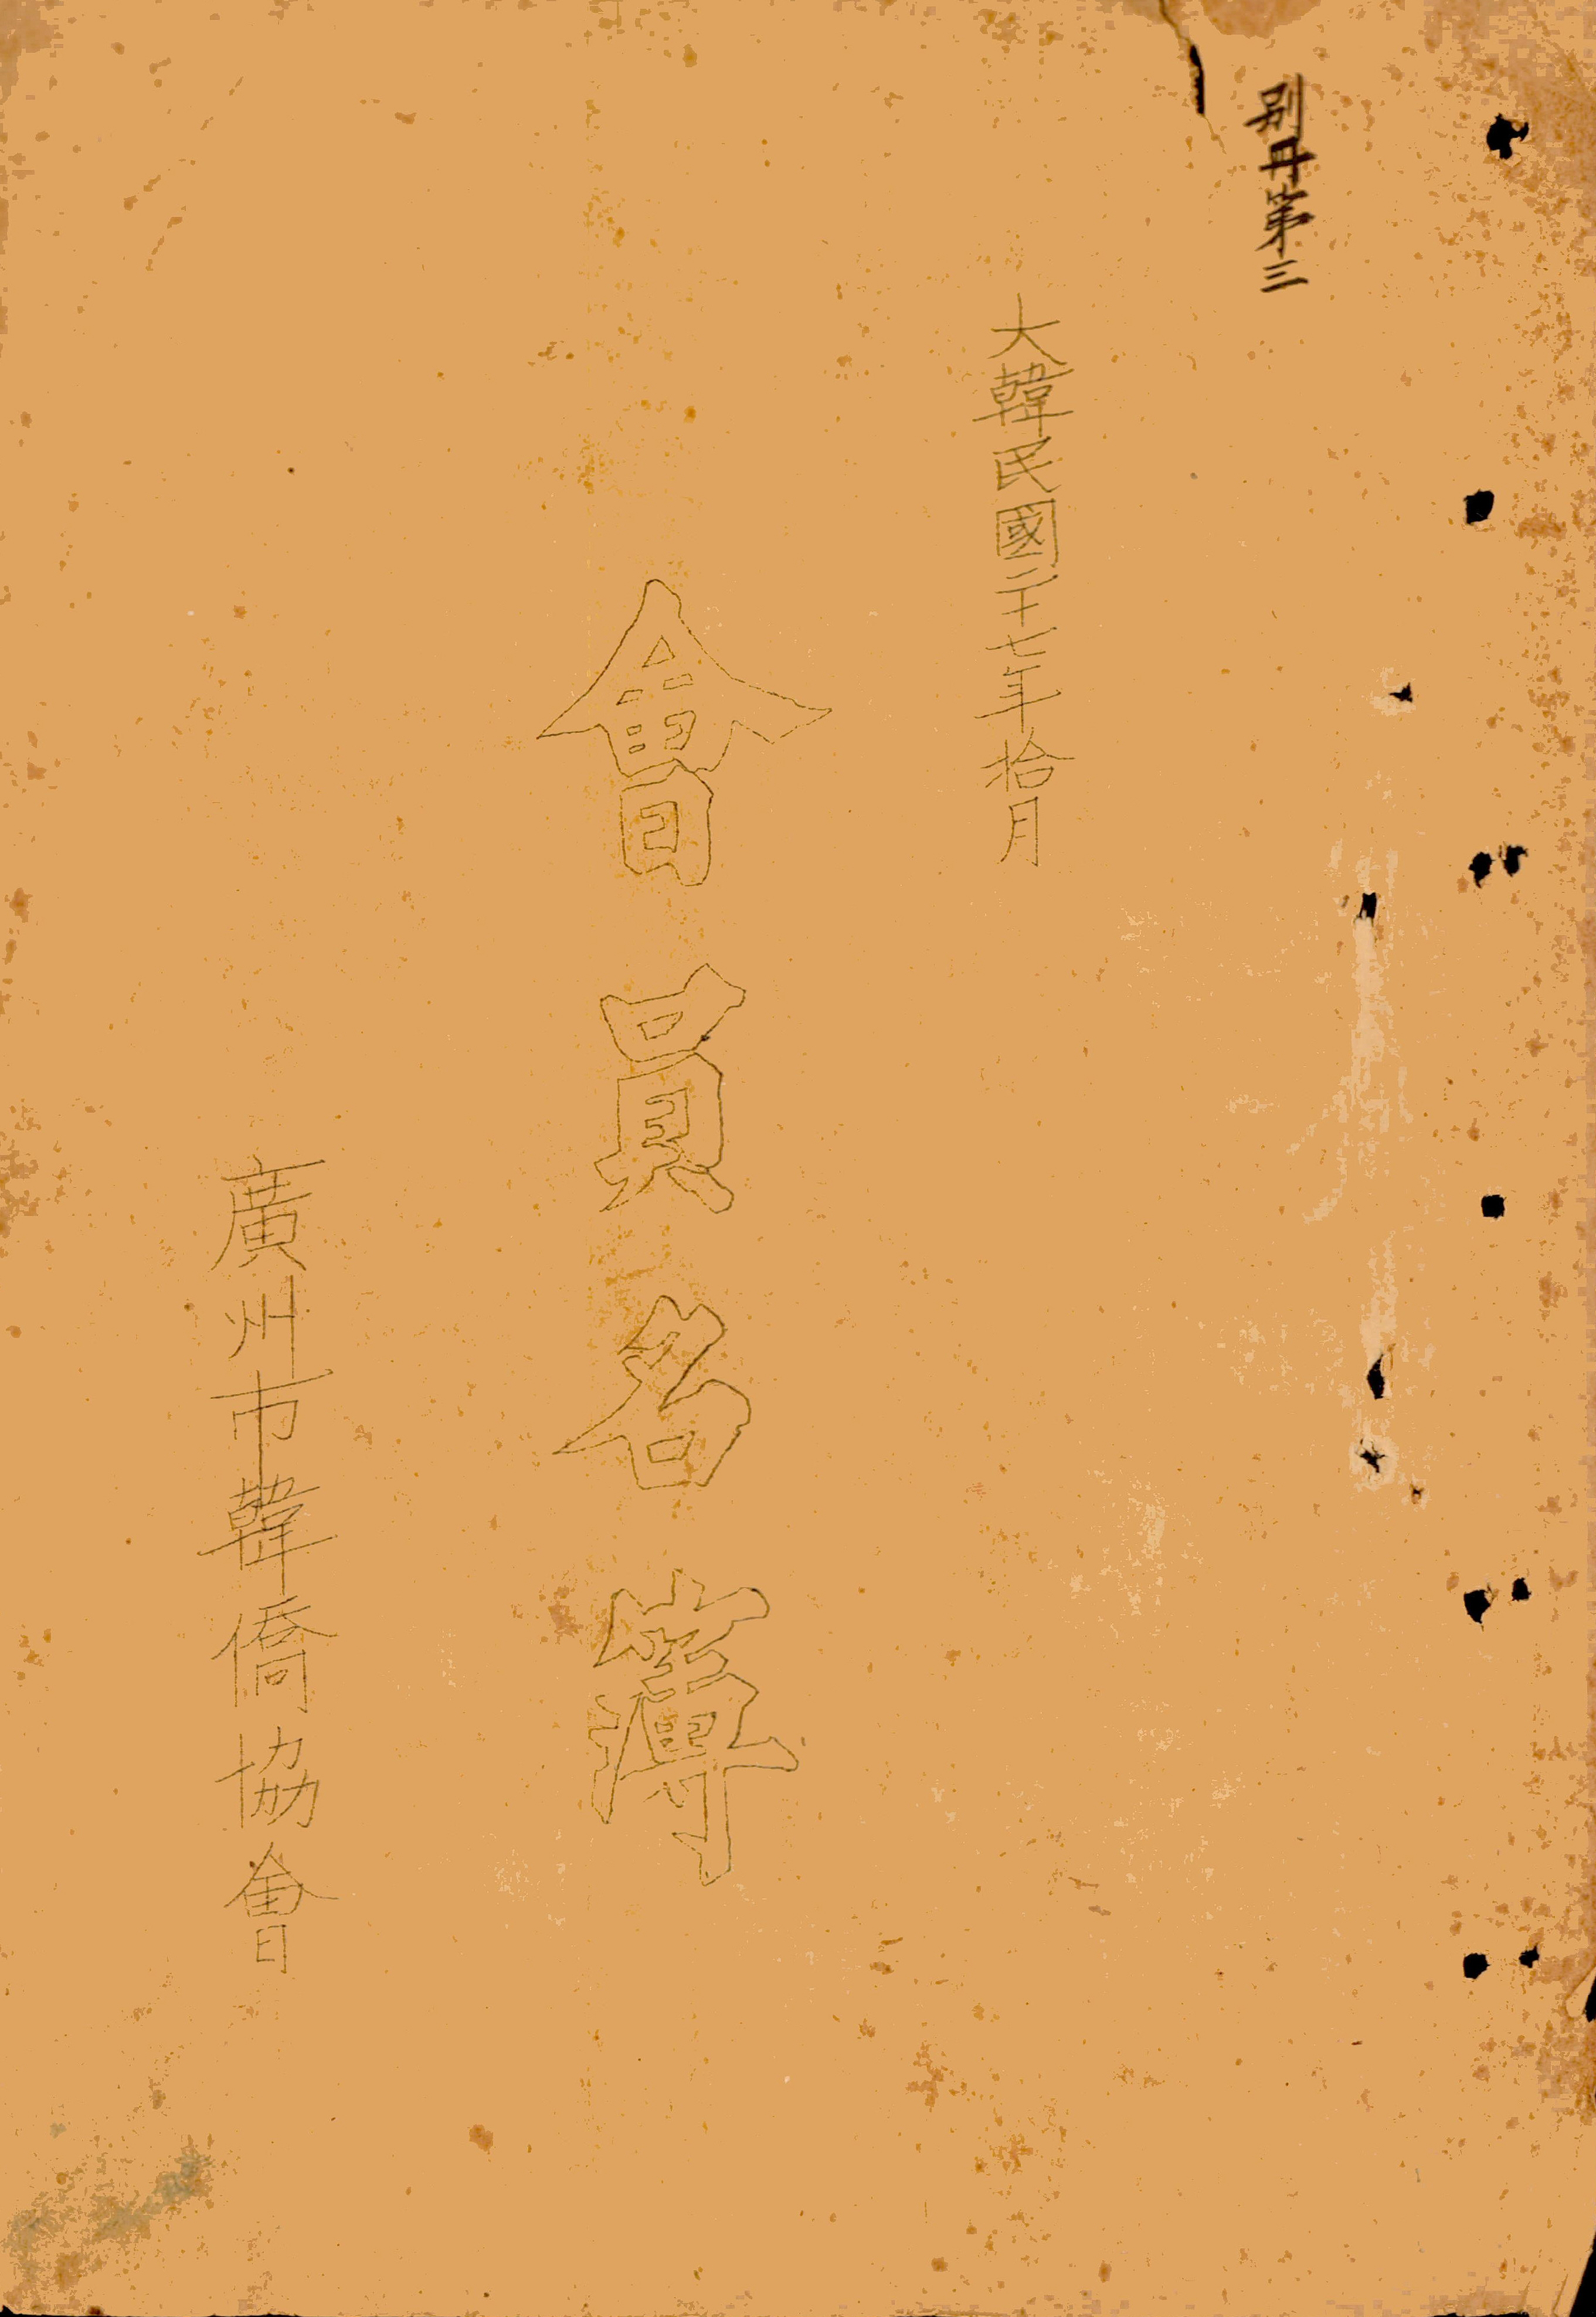 別冊第三
大韓民國二十七年拾月
會員名簿
廣州市韓僑協會